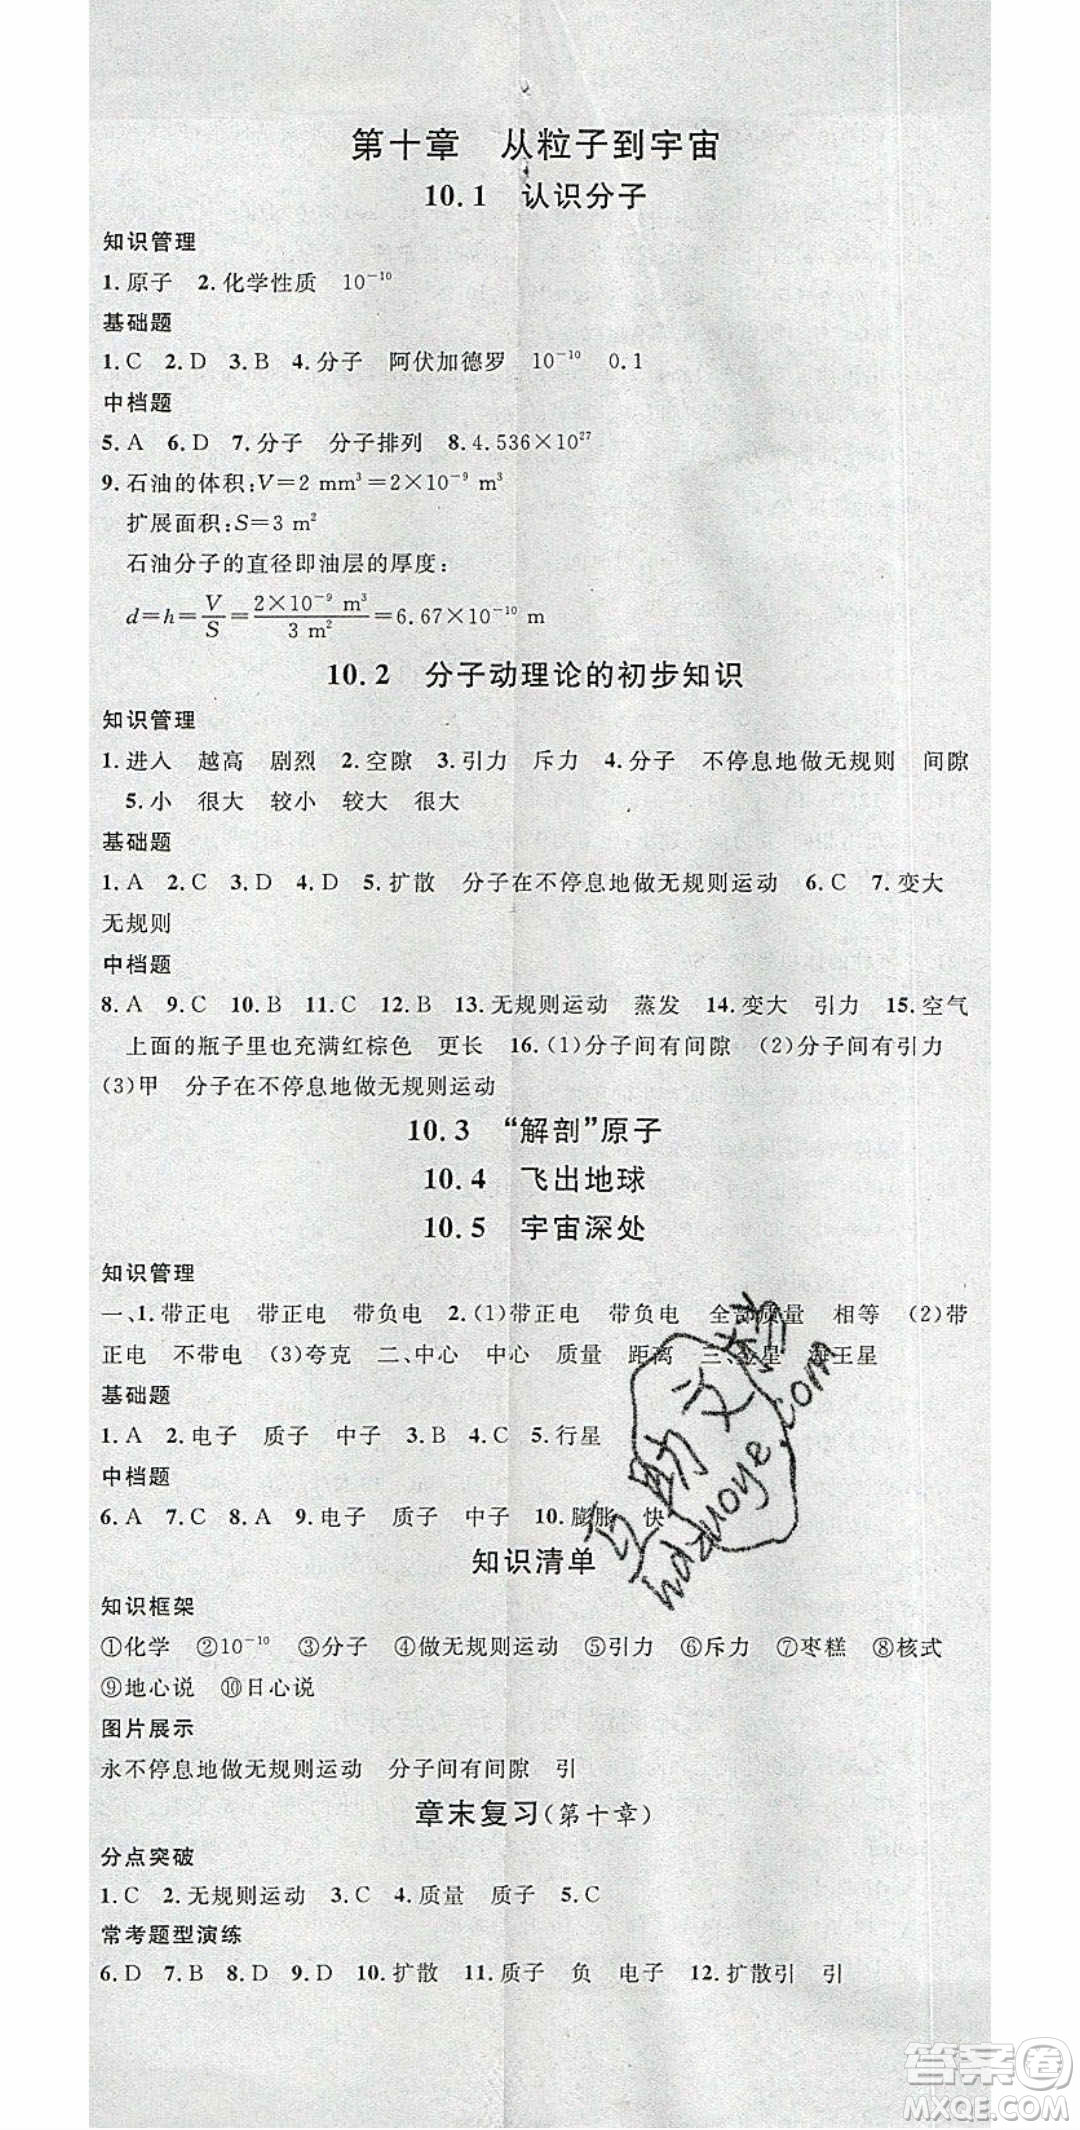 第十章 从粒子到宇宙
10.1 认识分子
知识管理
1.原子 2.化学性质 10⁻¹⁰
基础题
1.C 2.D 3.B 4.分子 阿伏加德罗 10⁻¹⁰ 0.1
中档题
5.A 6.D 7.分子 分子排列 8.4.536×10²⁷
9.石油的体积:V=2 mm³=2×10⁻⁹ m³
扩展面积:S=3 m²
石油分子的直径即油层的厚度:
d=h=V/S=2×10⁻⁹ m³/3 m²=6.67×10⁻¹⁰ m
10.2 分子动理论的初步知识
知识管理
1.进入 越高 剧烈 2.空隙 3.引力 斥力 4.分子 不停息地做无规则 间隙
5.小 很大 较小 较大 很大
基础题
1.A 2.C 3.D 4.D 5.扩散 分子在不停息地做无规则运动 6.C 7.变大
无规则
中档题
8.A 9.C 10.B 11.C 12.B 13.无规则运动 蒸发 14.变大 引力 15.空气
上面的瓶子里也充满红棕色 更长 16.(1)分子间有间隙 (2)分子间有引力
(3)甲 分子在不停息地做无规则运动
10.3 “解剖”原子
10.4 飞出地球
10.5 宇宙深处
知识管理
一、1.带正电 带正电 带负电 2.(1)带正电 带负电 全部质量 相等 (2)带
正电 不带电 (3)夸克 二、中心 中心 质量 距离 三、金星 海王星
基础题
1.A 2.电子 质子 中子 3.B 4.C 5.行星
中档题
6.A 7.C 8.A 9.电子 质子 中子 10.膨胀 快
知识清单
知识框架
①化学 ②10⁻¹⁰ ③分子 ④做无规则运动 ⑤引力 ⑥斥力 ⑦枣糕 ⑧核式
⑨地心说 ⑩日心说
图片展示
永不停息地做无规则运动 分子间有间隙 引
章末复习(第十章)
分点突破
1.C 2.无规则运动 3.C 4.质量 质子 5.C
常考题型演练
6.D 7.B 8.D 9.D 10.扩散 11.质子 负 电子 12.扩散引 引
答案圈
MXQE.COM